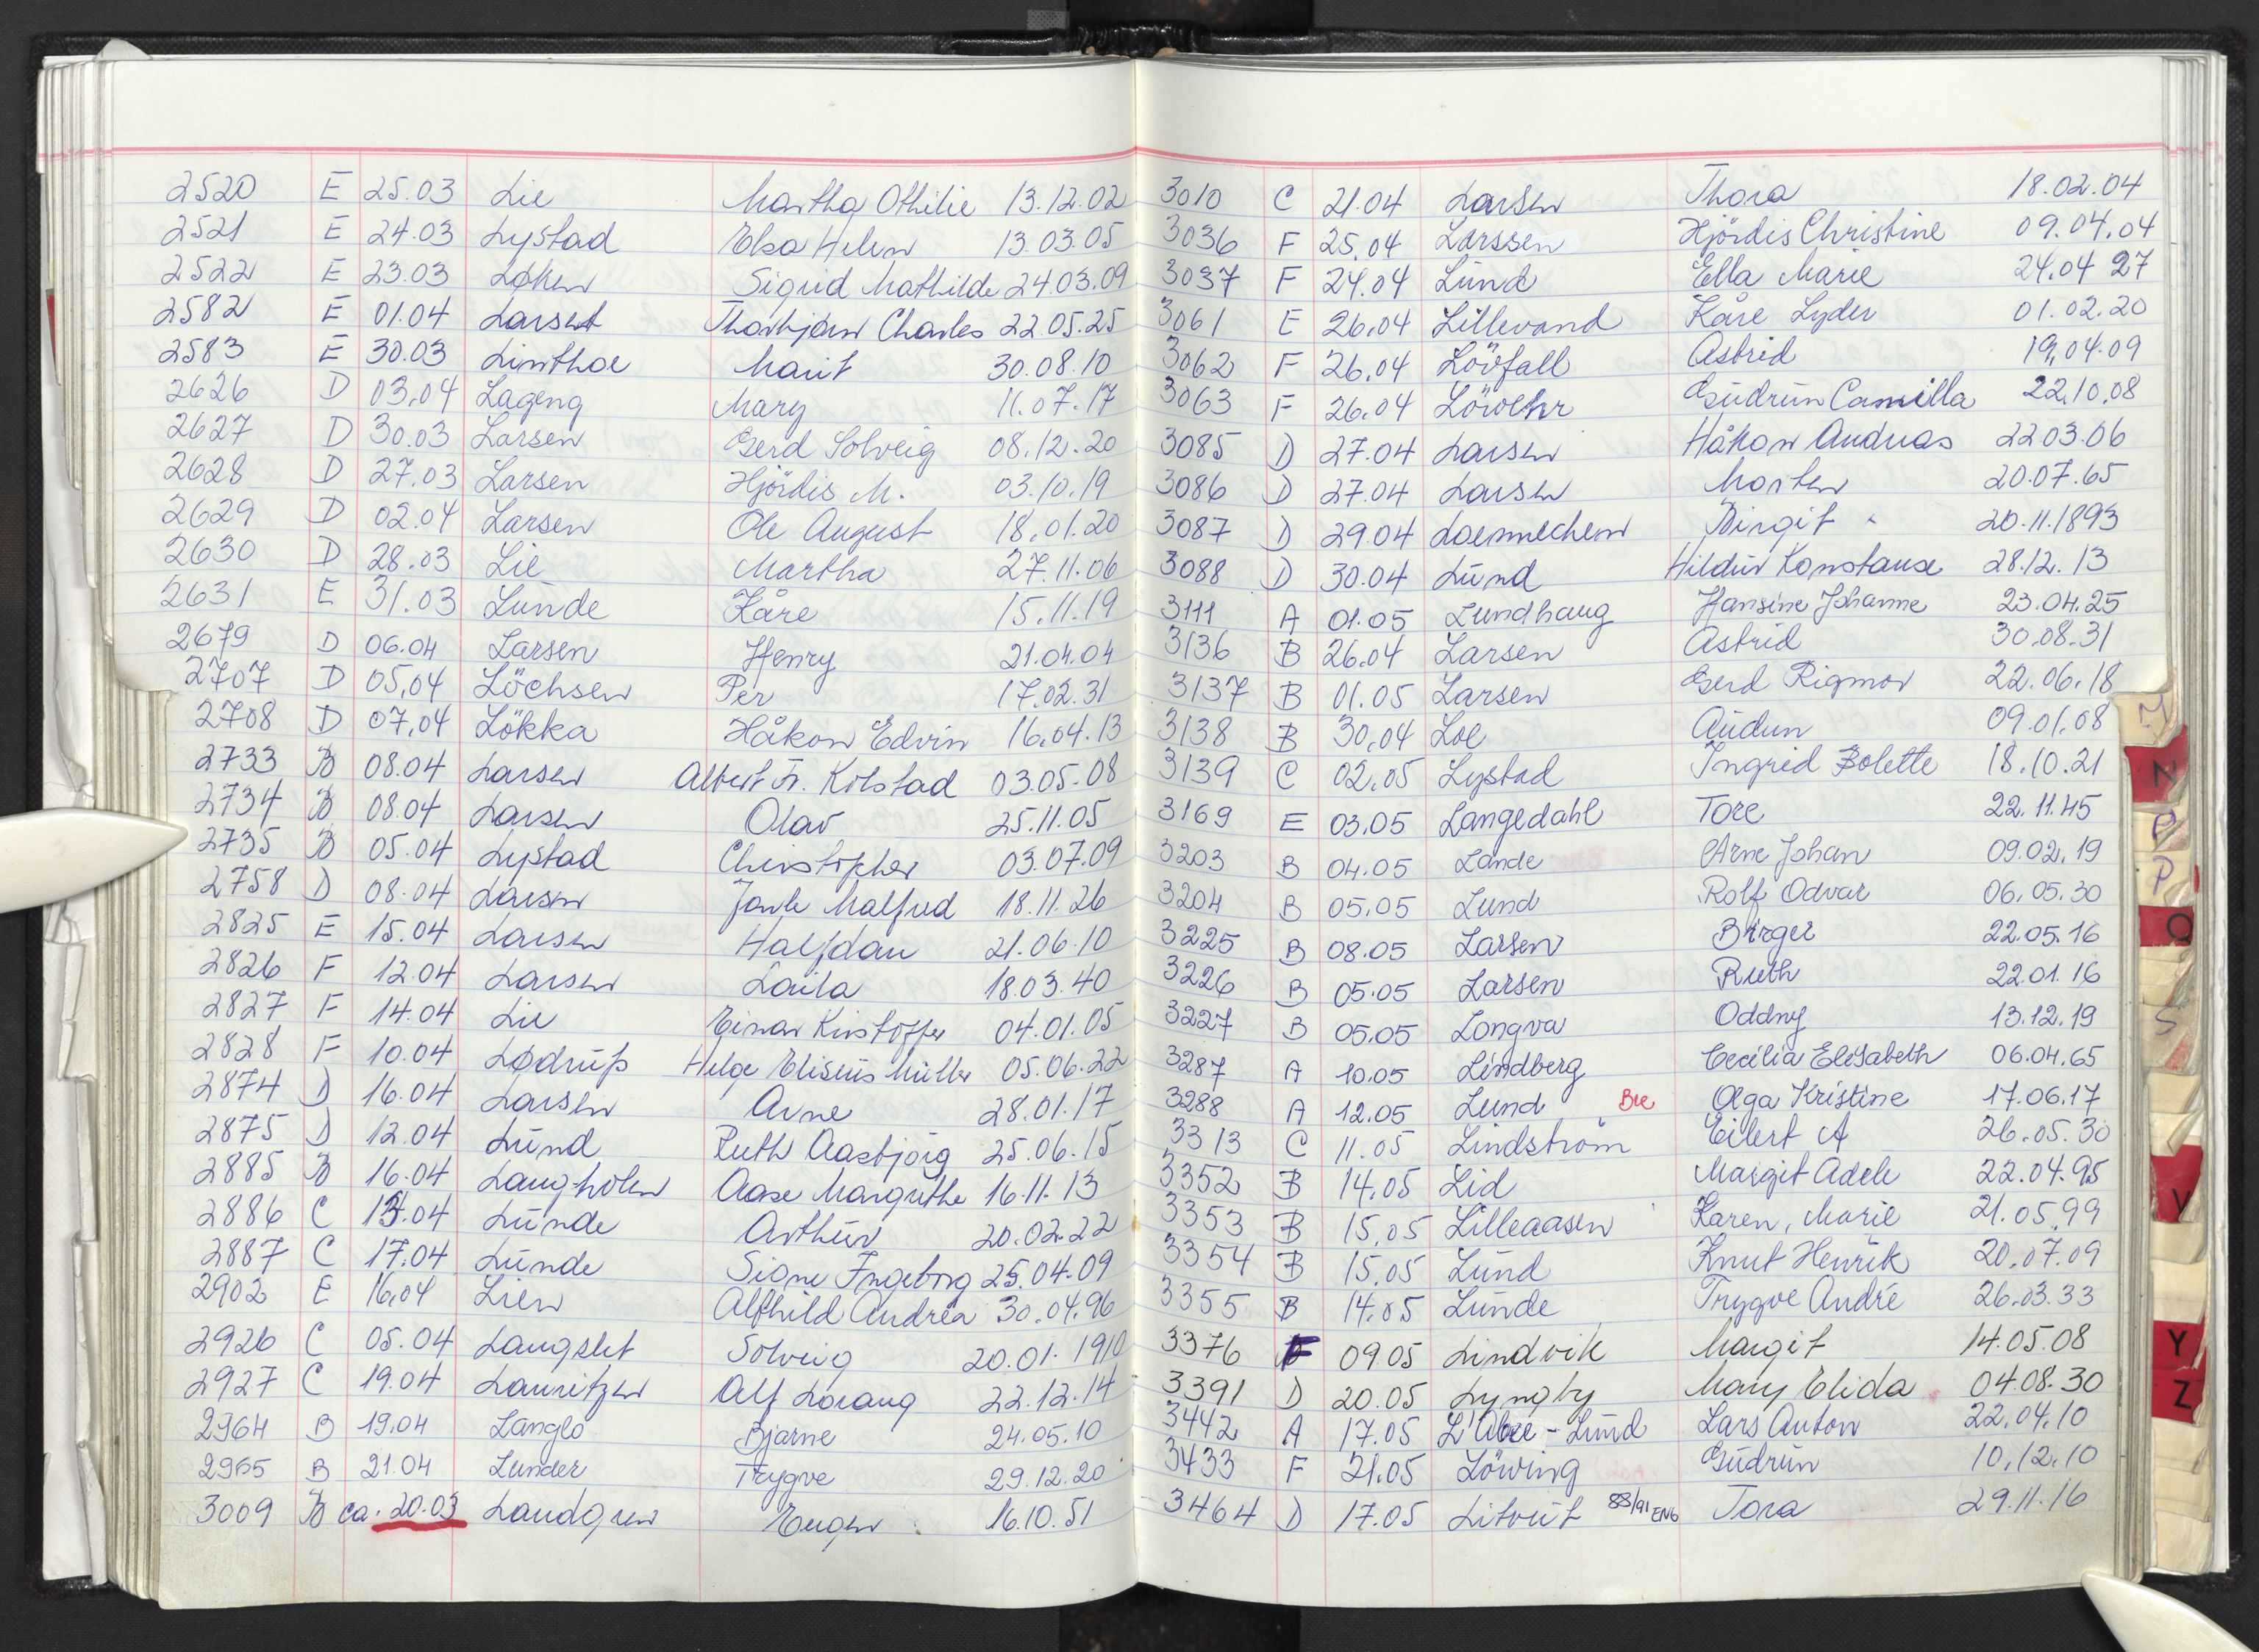 2520 E 25.03 Lie Martha Othilie 13.12.02
2521 E 24.03 Lystad Elsa Helen 13.03.05
2522 E 23.03 Løken Sigrid Mathilde 24.03.09
2582 E 01.04 Larsen Thorbjørn Charles 22.05.25
2583 E 30.03 Linthoe Marit 30.08.10
2626 D 03.04 Lageng Mary 11.07.17
2627 D 30.03 Larsen Gerd Solveig 08.12.20
2628 D 27.03 Larsen Hjördis M. 03.10.19
2629 D 02.04 Larsen Ole August 18.01.20
2630 D 28.03 Lie Martha 27.11.06
2631 E 31.03 Lunde Kåre 15.11.19
2679 D 06.04 Larsen Henry 21.04.04
2707 D 05.04 Löchsen Per 17.02.31
2708 D 07.04 Lökka Håkon Edvin 16.04.13
2733 B 08.04 Larsen Albert Fr. Kolstad 03.05.08
2734 B 08.04 Larsen Olav 25.11.05
2735 B 05.04 Lystad Christopher 03.07.09
2758 D 08.04 Larsen Malfred 18.11.26
2825 E 15.04 Larsen Halfdan 21.06.10
2826 F 12.04 Larsen Laila 18.03.40
2827 F 14.04 Lie Einar Kristoffer 04.01.05
2828 F 10.04 Lødrup Helge Eliseus Müller 05.06.22
2874 D 16.04 Larsen Arne 28.01.17
2875 D 12.04 Lund Ruth Aasbjörg 25.06.15
2885 B 16.04 Langholen Aase Margrethe 16.11.13
2886 C 14.04 Lunde Arthur 20.02.22
2887 C 17.04 Lunde Signe Ingeborg 25.04.09
2902 E 16.04 Lien Alfhild Andrea 30.04.96
2926 C 05.04 Langslet Solveig 20.01.1910
2927 C 19.04 Lauritzen Alf Lorang 22.12.14
2964 B 19.04 Langlo Bjarne 24.05.10
2965 B 21.04 Lunder Trygve 29.12.20
3009 B ca. 20.03 Landgren Eugen 16.10.51
3010 C 21.04 Larsen Thora 18.02.04
3036 F 25.04 Larssen Hjördis Christine 09.04.04
3037 F 24.04 Lund Ella Marie 24.04 27
3061 E 26.04 Lillevand Kåre Lyder 01.02.20
3062 F 26.04 Lövfall Astrid 19.04.09
3063 F 26.04 Gudrun Camilla 22.10.08
3085 D 27.04 Larsen Håkon Andreas 22.03.06
3086 D 27.04 Larsen Morten 20.07.65
3087 D 29.04 Loennechen Birgit 20.11.1893
3088 D 30.04 Lund Hildur Konstanse 28.12.13
3111 A 01.05 Lundhaug Hansine Johanne 23.04.25
3136 B 26.04 Larsen Astrid 30.08.31
3137 B 01.05 Larsen Gerd Rigmor 22.06.18
3138 B 30.04 Loe Audun 09.01.08
3139 C 02.05 Lystad Ingrid Bolette 18.10.21
3169 E 03.05 Langedahl Tore 22.11.45
3203 B 04.05 Lande Arne Johan 09.02.19
3204 B 05.05 Lund Rolf Odvar 06.05.30
3225 B 08.05 Larsen Birger 22.05.16
3226 B 05.05 Larsen Ruth 22.01.16
3227 B 05.05 Longva Oddny 13.12.19
3287 A 10.05 Lindberg Cecilia Elisabeth 06.04.65
3288 A 12.05 Lund Bre Olga Kristine 17.06.17
3313 C 11.05 Lindström Eilert A 26.05.30
3352 B 14.05 Lid Margit Adele 22.04.95
3353 B 15.05 Lilleaasen Karen, Marie 21.05.99
3354 B 15.05 Lund Knut Henrik 20.07.09
3355 B 14.05 Lunde Trygve André 26.03.33
3376 F 09.05 Lindvik Margit 14.05.08
3391 D 20.05 Lyngby Mary Elida 04.08.30
3442 A 17.05 L'Abée-Lund Lars Anton 22.04.10
3433 F 21.05 Löwing Gudrun 10.12.10
3464 D 17.05 Litvut 88/91 ENG Tora 29.11.16
M
N
Ø
P
Q
S
V
Y
Z